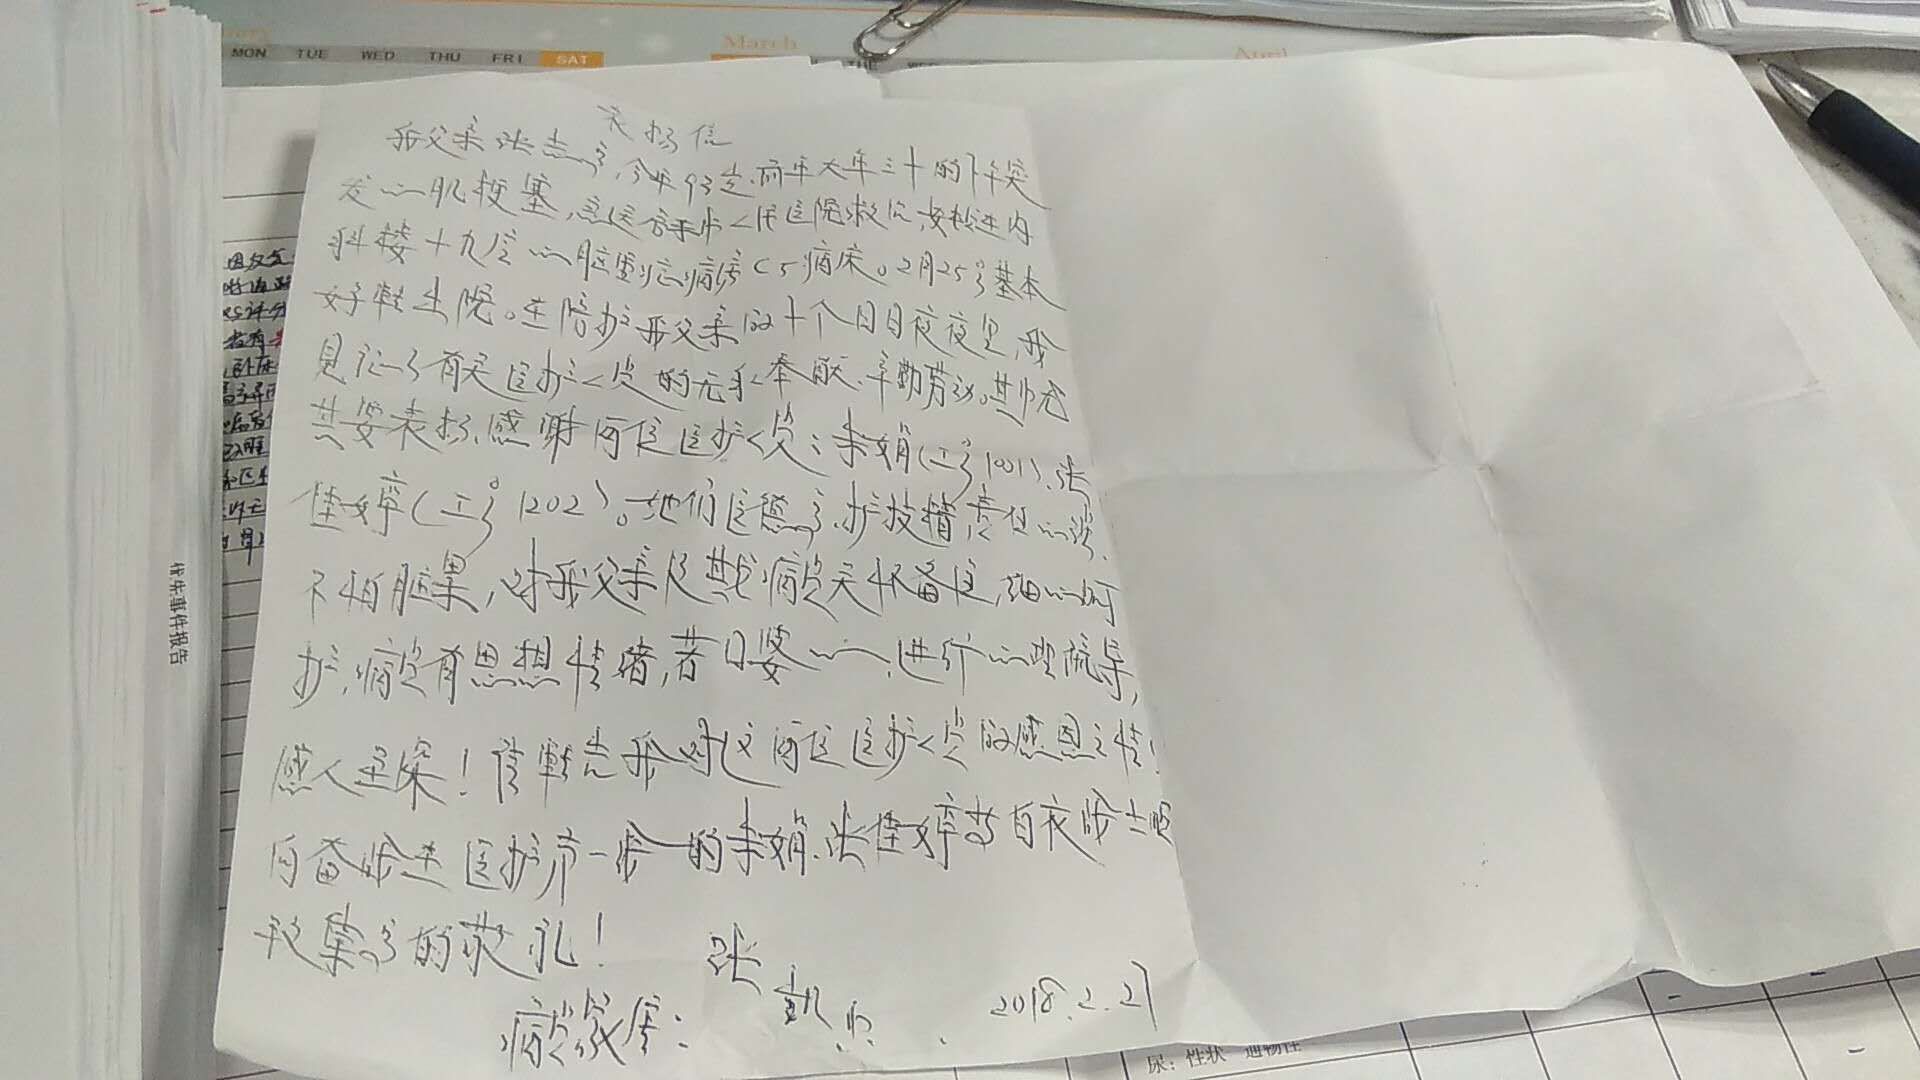 MON TUE WED THU FRI SAT
March
April
表扬信
我父亲张志高,今年93岁,前年大年三十的下午突
发心肌梗塞,急送 市人民医院救治,安转进内
科楼十九层心脏 病房C5病床。2月25号基本
好转出院。在陪护我父亲的十个日日夜夜里,我
见证了有关医护人员的无私奉献、辛勤劳动。其中尤
其要表扬、感谢两位医护人员:朱娟(工号1001)、张
佳婷(工号1202)。她们医德高、护技精、责任心强、
不怕脏累,对我父亲及其它病员关怀备至,细心呵
护,病员有思想情绪,苦口婆心,进行心理疏导,
感人至深!请转告我对这两位医护人员的感恩之情!
向奋战在医护第一线的朱娟、张佳婷等白衣战士致
于最崇高的敬礼!
病员家属:
张凯
2018.2.27
优失事件报告
尿:性状 通畅性